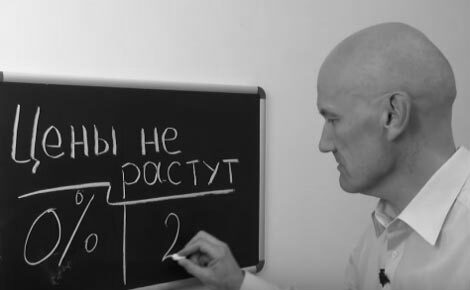 Цены не
растут
%
0% 2